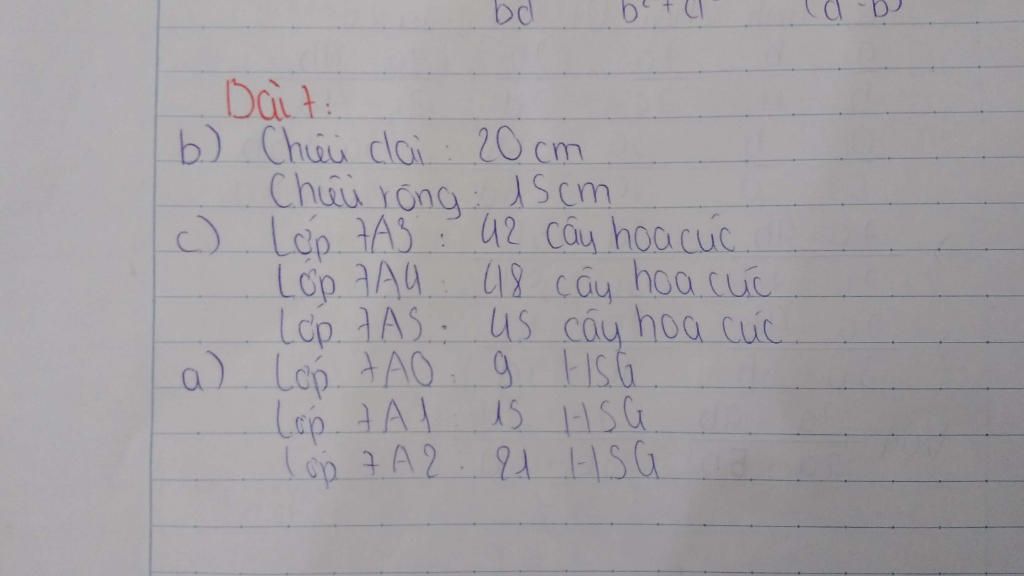 bd b² + d (d - b)
Bài 7:
b) Chiều dài : 20 cm
Chiều rộng : 15 cm
c) Lớp 7A3 : 42 cây hoa cúc
Lớp 7A4 : 48 cây hoa cúc
Lớp 7A5 : 45 cây hoa cúc
a) Lớp 7A0 : 9 HSG
Lớp 7A1 : 15 HSG
Lớp 7A2 : 21 HSG